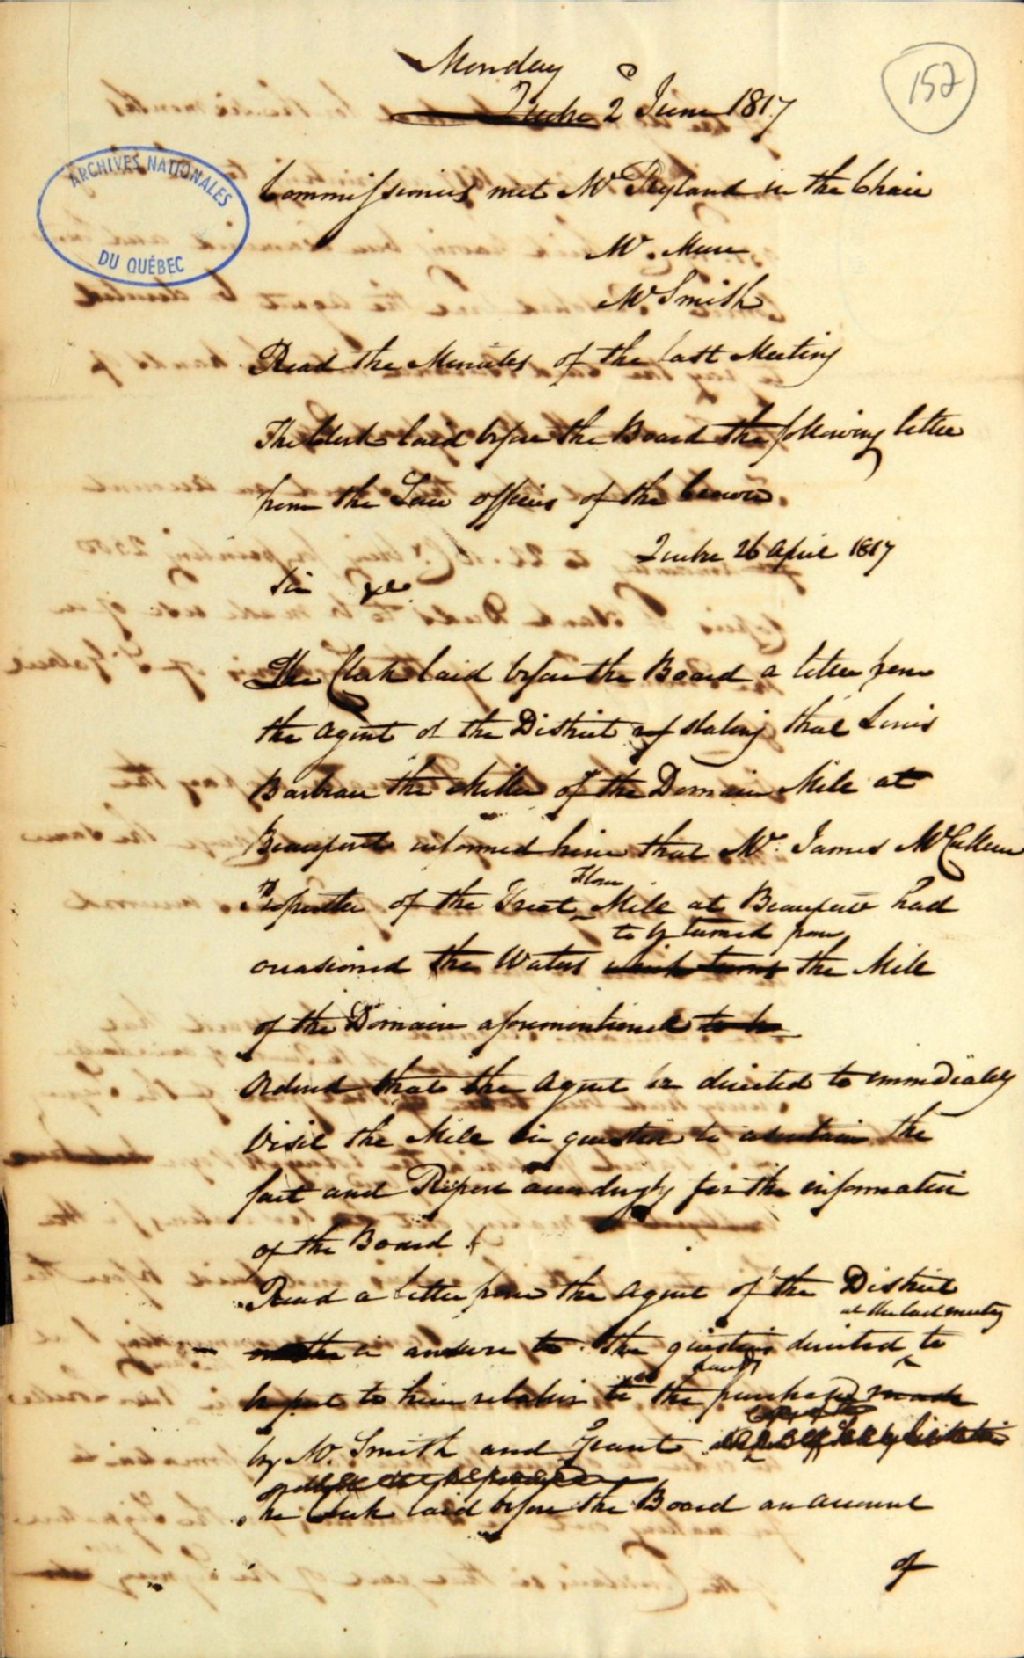 157
Monday
Quebec 2 June 1817
ARCHIVES NATIONALES
DU QUÉBEC
Commissioners met Mr Ryland in the Chair
Mr. Mure
Mr Smith
Read the Minutes of the last Meeting
The Clerk laid before the Board the following letter
from the Law officers of the Crown
Quebec 26 April 1817
Sir &c.
The Clerk laid before the Board a letter from
the Agent of the District stating that Louis
the Miller of the Domain Mill at
Beauport informed him that Mr. James McCallum
Proprietor of the Great Flour Mill at Beauport had
to be turned from
occasioned the Waters which turns the Mill
of the Domain aforementioned to be
Ordered that the Agent be directed to immediately
Visit the Mill in question to ascertain the
fact and Report accordingly for the information
of the Board
Read a letter from the Agent of the District
at the last meeting
in answer to the questions directed to
be put to him relative to the purchased made
by Mr. Smith and Grant
The Clerk laid before the Board an account
of